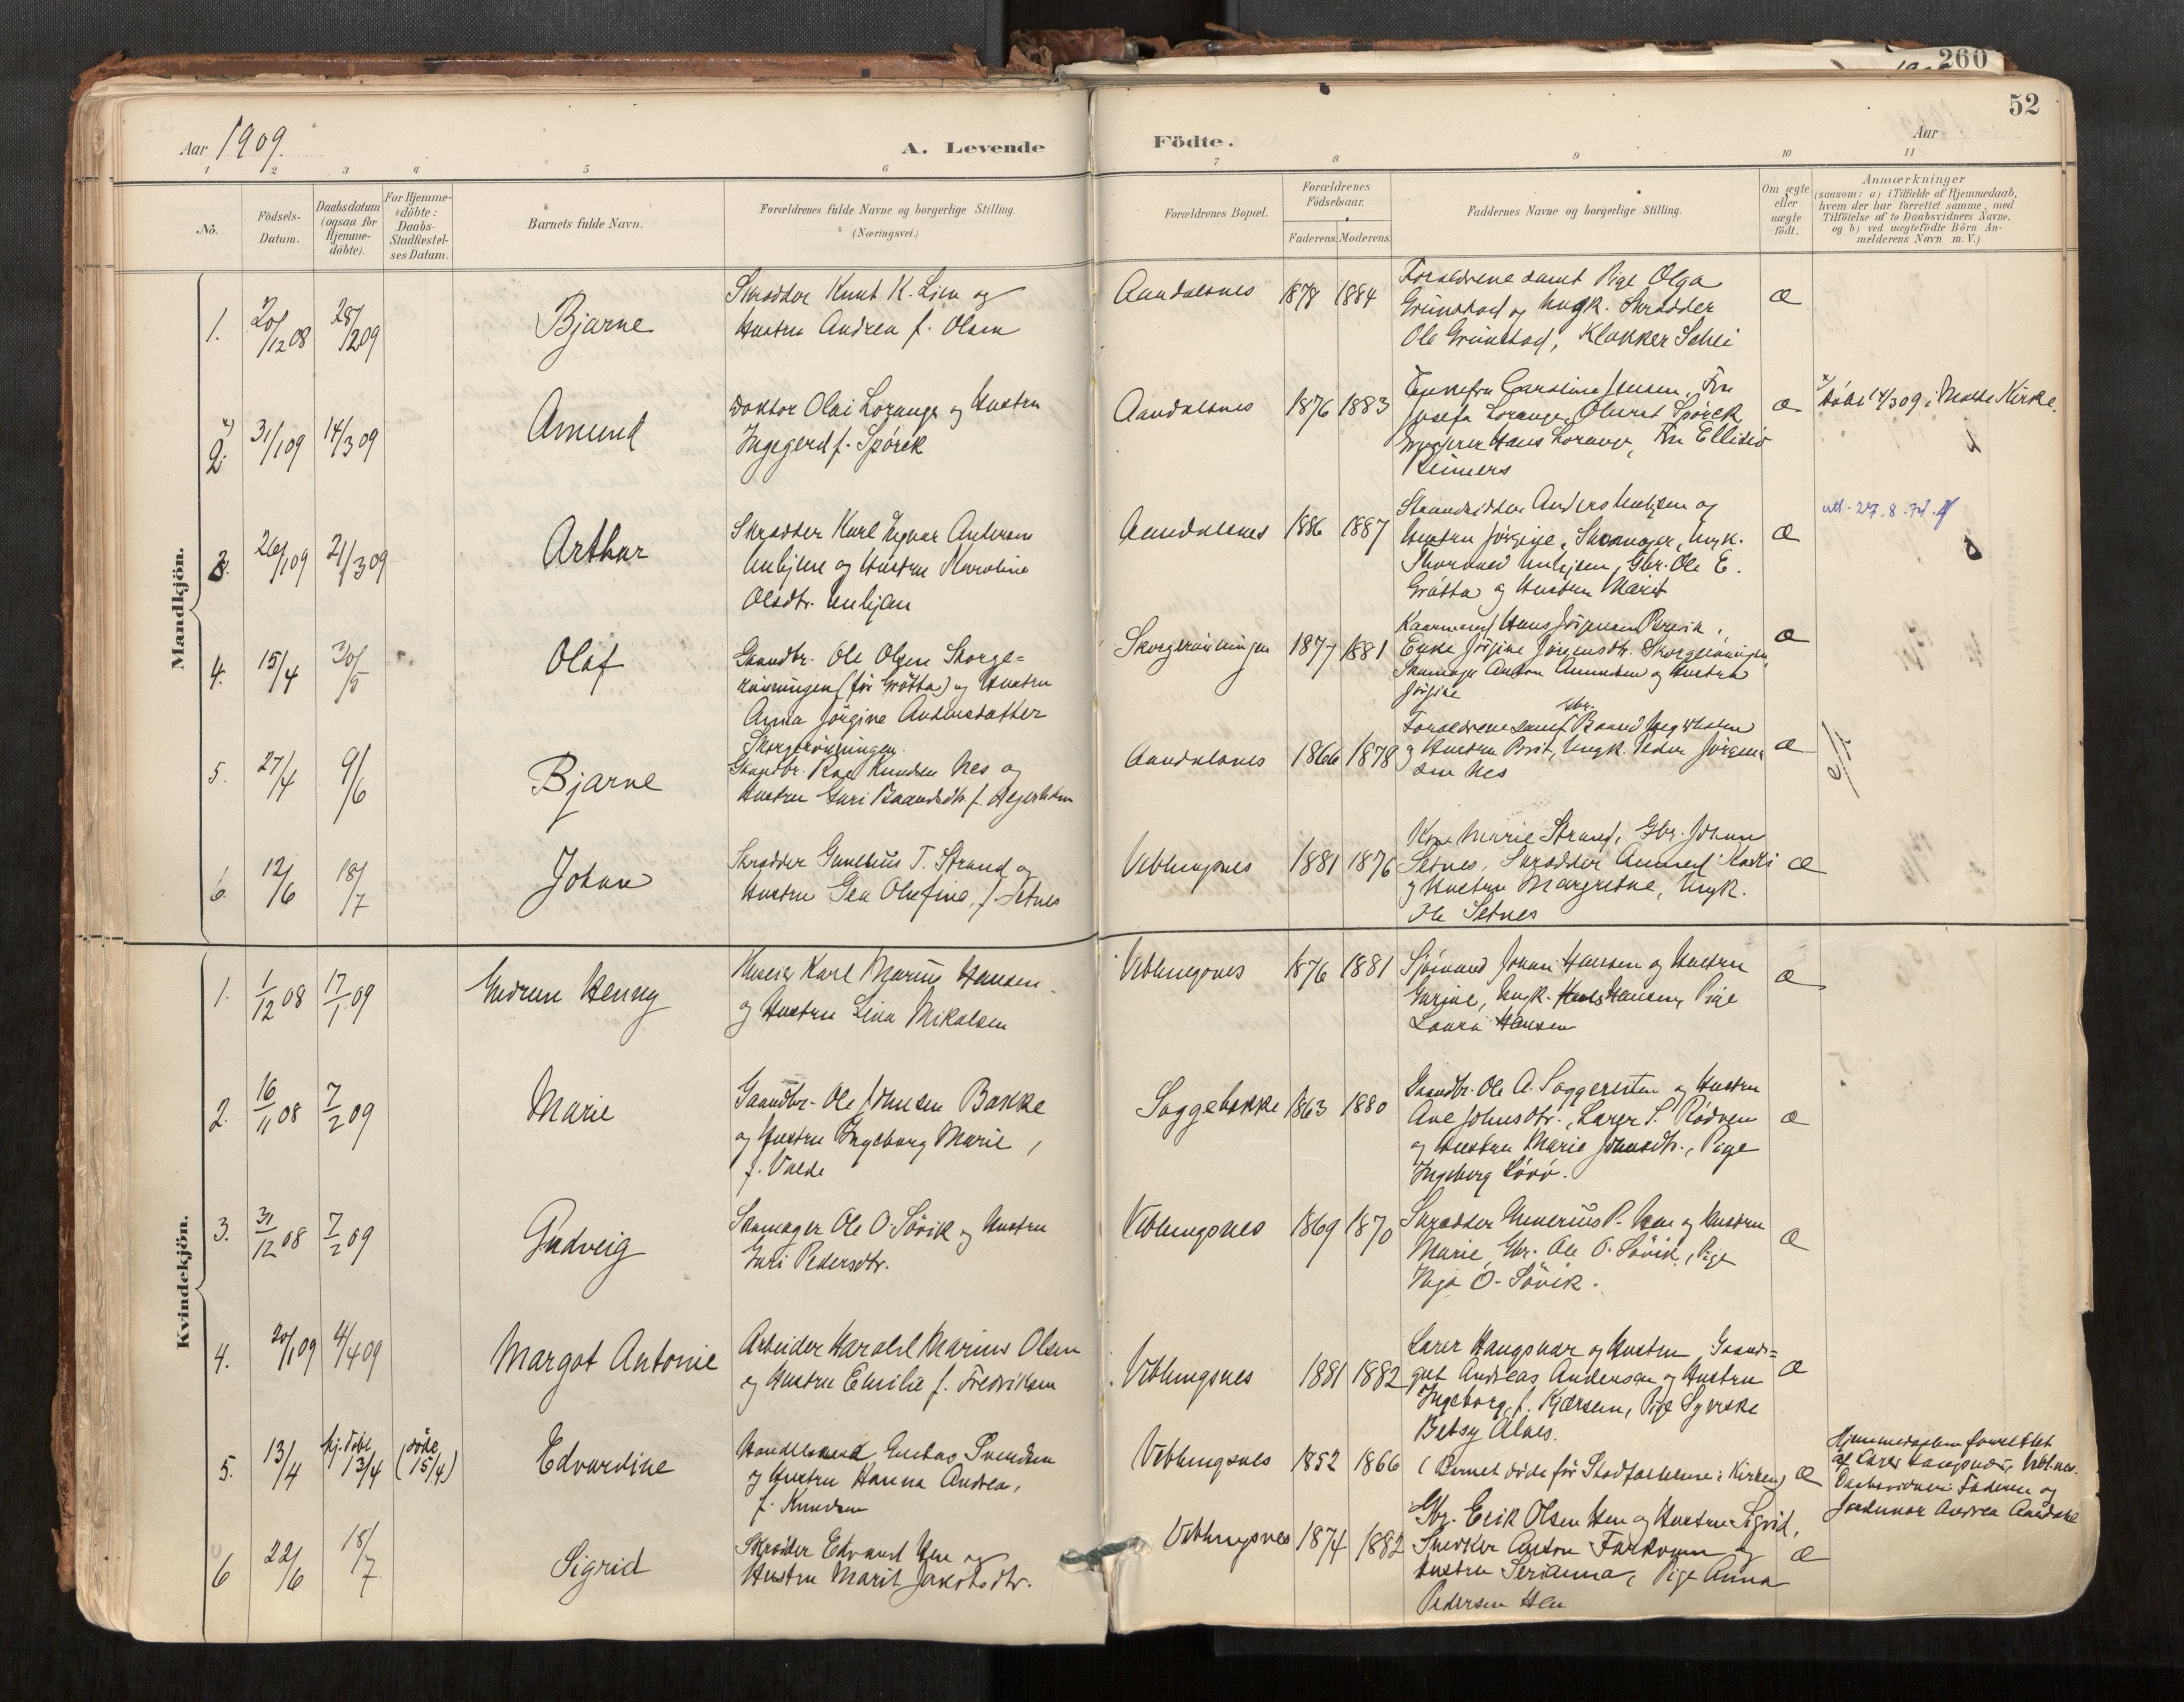 260
52
Aar 1909.
A. Levende Födte.
Aar
1 2 3 4 5 6 7 8 9 10 11
No.
Födsels-
Datum.
Daabsdatum
(ogsaa for
Hjemme-
döbte).
For Hjemme-
döbte:
Daabs-
Stadfæstel-
ses Datum.
Barnets fulde Navn.
Forældrenes fulde Navne og borgerlige Stilling.
(Næringsvei.)
Forældrenes Bopæl.
Forældrenes
Födselsaar.
Faderens. Moderens.
Faddernes Navne og borgerlige Stilling.
Om ægte
eller
uægte
födt.
Anmærkninger
(saasom: a) i Tilfælde af Hjemmedaab,
hvem der har forrettet samme, med
Tilföielse af to Daabsvidners Navne.
og b) ved uægtefödte Börn An-
melderens Navn m. V.)
Mandkjön.
1. 20/12 08 28/2 09 Bjarne
Skrædder Knut K. Lien og
Hustru Andrea f. Olsen
Aandalsnes 1878 1884
Forældrene samt Pige Olga
Grönstad og Ungk. Skrædder
Ole Grönstad, Klokker Schei
æ
2. 31/1 09 14/3 09 Amund
Doktor Olai Lorange og Hustru
Ingegerd f. Spörck
Aandalsnes 1876 1883
Enkefru Caroline Jensen, Fru
Josefa Lorange, Oberst Spörck
Hans Lorange, Fru Ellisiv
Reimers
æ
döbt 14/3 09 i Molde Kirke.
3. 26/1 09 21/3 09 Arthur
Skrædder Karl Ingvar Andersen
Unhjem og Hustru Karoline
Olsdtr. Unhjem
Aandalsnes 1886 1887
Anders Unhjem og
Hustru Jörgine, Skomager, Ungk.
Thorvald Unhjem, Gbr. Ole E.
Grötta og Hustru Marit
æ
utt. 27.8.74
4. 15/4 30/5 Olaf
Gaardbr. Ole Olsen Skorge-
rönningen (för Grötta) og Hustru
Anna Jörgine Andersdatter
Skorgerönningen.
Skorgerönningen 1877 1881
Kaarmand Hans Jörgensen
Enke Jörgine Jörgensdtr. Skorgerönningen,
Skomager Anton Amundsen og Hustru
Jörgine
æ
5. 27/4 9/6 Bjarne
Gaardbr. Knudsen Nes og
Hustru Guri Baardsdtr. f.
Aandalsnes 1866 1878
Forældrene samt Gbr. Baard
og Hustru Brit, Ungk. Peder Jörgen-
sen Nes
æ
6. 12/6 18/7 Johan
Skrædder T. Strand og
Hustru Gea Olufine, f. Setnes
Veblungsnes 1881 1876
Kone Marie Strand, Gbr. Johan
Setnes, Skrædder Amund
og Hustru Margrethe, Ungk.
Ole Setnes
æ
Kvindekjön.
1. 1/12 08 17/1 09 Gudrun Henny
Karl Marius Hansen
og Hustru Lina Mikalsen
Veblungsnes 1876 1881
Sjömand Johan Hansen og Hustru
Gurine, Ungk. Hansen, Pige
Laura Hansen
æ
2. 16/11 08 7/2 09 Marie
Gaardbr. Ole Johnsen Bakke
og Hustru Ingeborg Marie,
f. Volde
Soggebakke 1863 1880
Gaardbr. Ole A. Soggeristen og Hustru
Ane Johnsdtr., Lærer S. Rödven
og Hustru Marie Johnsdtr., Pige
Ingeborg
æ
3. 31/12 08 7/2 09 Gudveig
Skomager Ole O. Sövik og Hustru
Guri Pedersdtr.
Veblungsnes 1869 1870
Skrædder P. Hen og Hustru
Marie, Gbr. Ole O. Sövik, Pige
Inga O. Sövik.
æ
4. 20/1 09 4/4 09 Margot Antonie
Arbeider Harald Marius Olsen
og Hustru Emilie f. Fredriksen
Veblungsnes 1881 1882
Lærer Haugsnar og Hustru, Gaard-
gut Andreas Andersen og Hustru
Ingeborg, f. Kjærsem, Pige Syerske
Betsy Alnes.
æ
5. 13/4 hj. döbt 13/4 (döde 15/4) Edvardine
Handelsmand Gustav Svendsen
og Hustru Hanna Andrea,
f. Knudsen
Veblungsnes 1852 1866
(Barnet döde för Stadfæstelsen i Kirken) æ
Hjemmedaaben forrettet
af Lærer Haugsnar, Vebl.nes.
Daabsvidner: Faderen og
Jordemor Andrea Aandahl
6 22/6 18/7 Sigrid
Skrædder Edvard Hen og
Hustru Marit Jakobsdtr.
Veblungsnes 1874 1882
Gbr. Erik Olsen Hen og Hustru Sigrid,
Snedker Anton Farkvam og
Hustru Serianna, Pige Anna
Pedersen Hen
æ